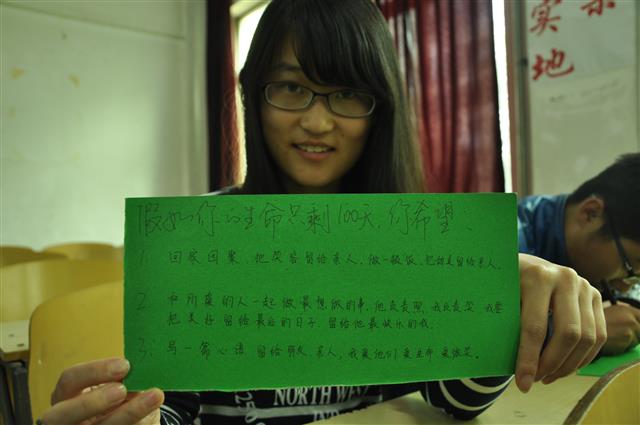 假如你的生命只剩100天,你希望:
1. 回家团聚、把笑容留给亲人,做一顿饭,把味道留给亲人。
2. 和所爱的人一起做最想做的事,他负责照,我负责笑,我要
把美好留给最后的日子,留给他最快乐的我。
3. 写一篇心语,留给朋友、亲人,我爱他们,爱生命,爱微笑。
NORTH WE
250
实
地